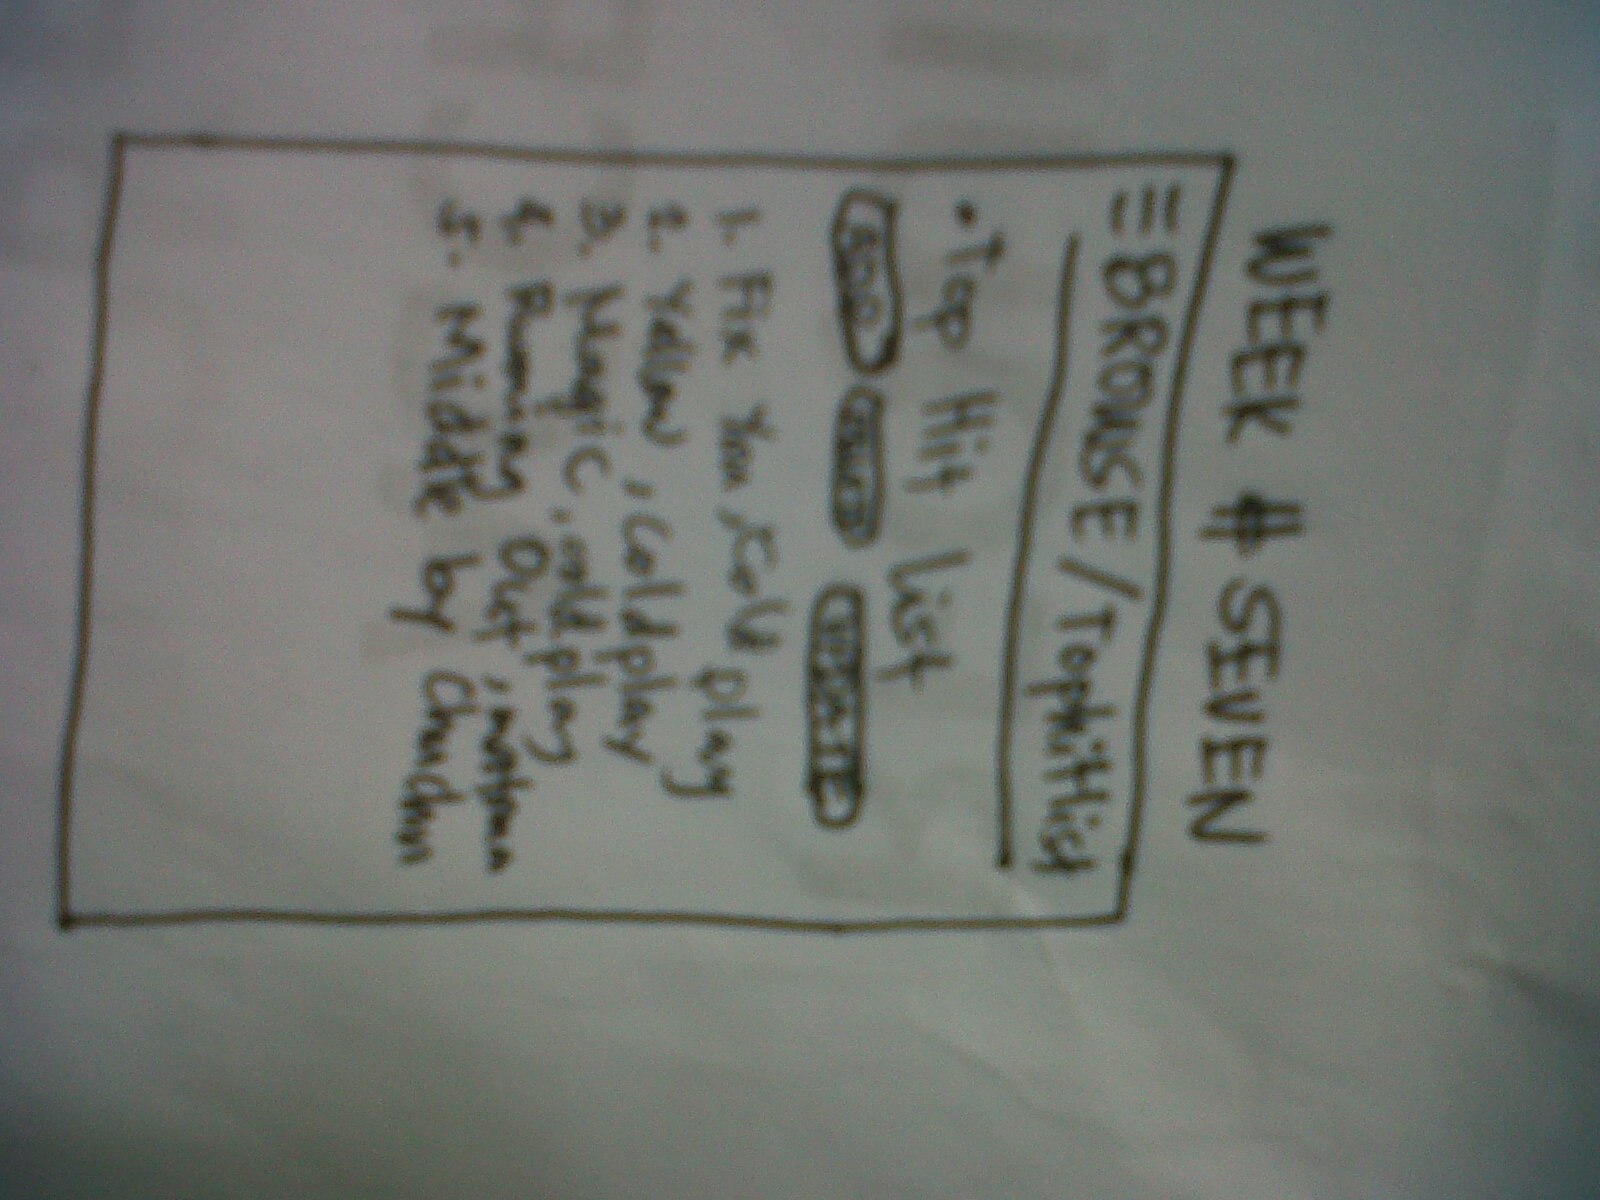 WEEK # SEVEN
BROWSE / TopHitlist
• Top Hit List
ADD UPDATE
1. Fix You, Coldplay
2. Yellow, Coldplay
3. Magic, coldplay
4. Running Out, matoma
5. Middle by